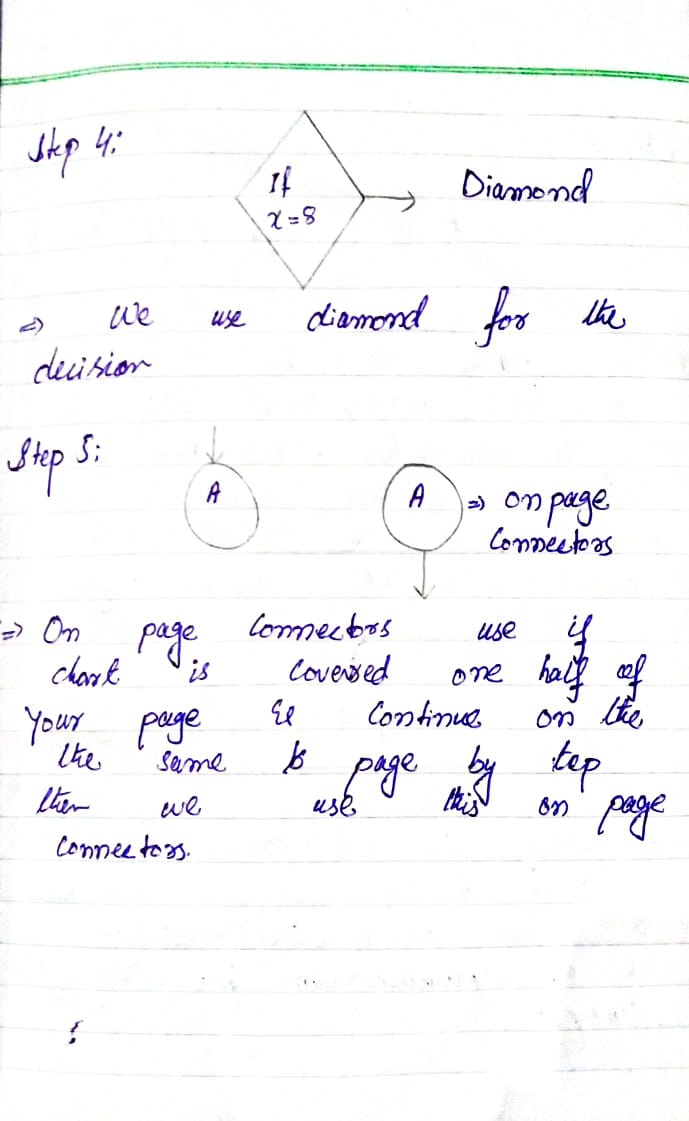 Step 4:
If
x=8
Diamond
=> We use diamond for the
decision
Step 5:
A
A => on page
Connectors
=> On page Connectors use if
chart is covered one half of
Your page & Continue on the
the same page by top
then we use this on page
Connectors.